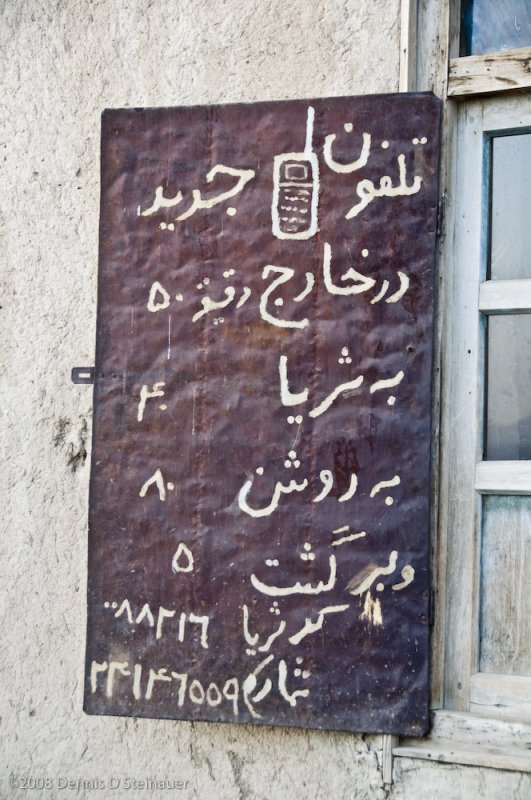 تلفون جدید
در خارج دقیقه ۵۰
به ثریا ۴۰
به روشن ۸۰
و برگشت ۵
کد ثریا ۰۰۸۸۲۱۶
شماره
©2008 Dennis D Steinauer